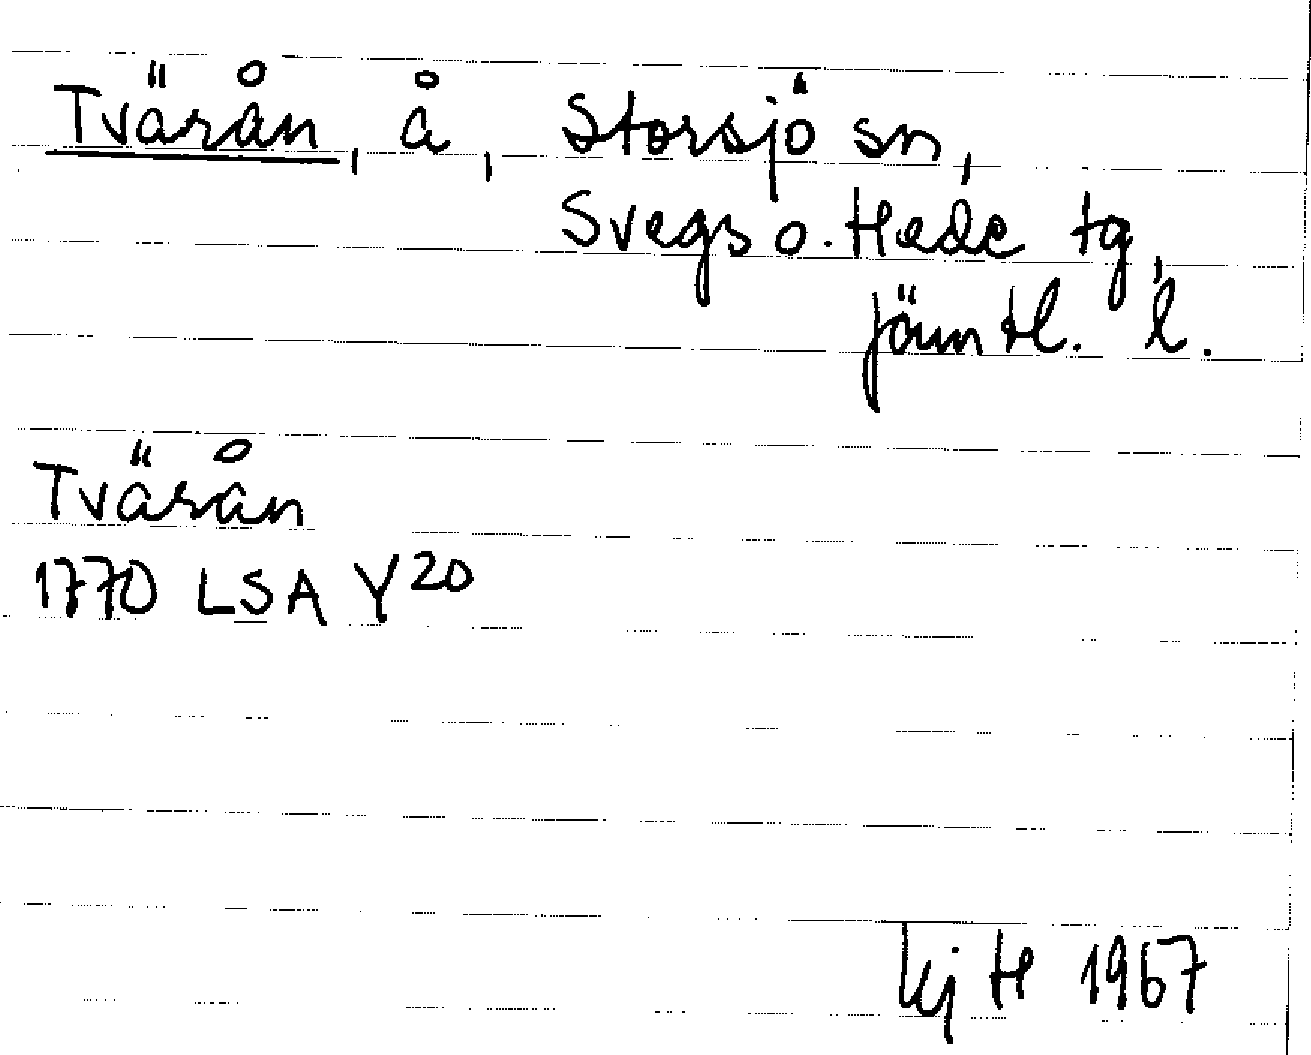 Tvärån, å, Storsjö sn,
Svegs o. Hede tg,
Jämtl. l.
Tvärån
1770 LSA Y20
kj H 1967